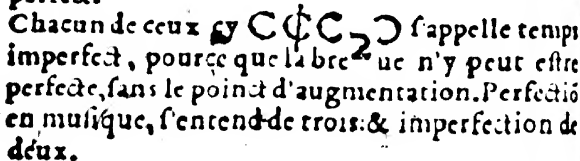 Chacun de ceux cy C ₵ C2 Ↄ ſ'appelle temps
imperfect, pource que la breue n'y peut eſtre
perfecte, ſans le poinct d'augmentation. Perfectiõ
en muſique, ſ'entend de trois: & imperfection de
deux.